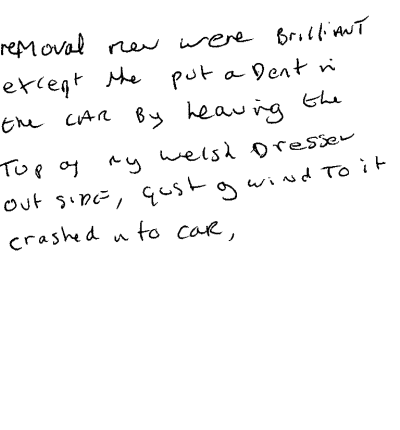 removal men were BrilliANT
except the put a Dent in
the CAR By leaving the
Top of my welsh Dresser
out side, gust of wind To it
crashed into CAR,